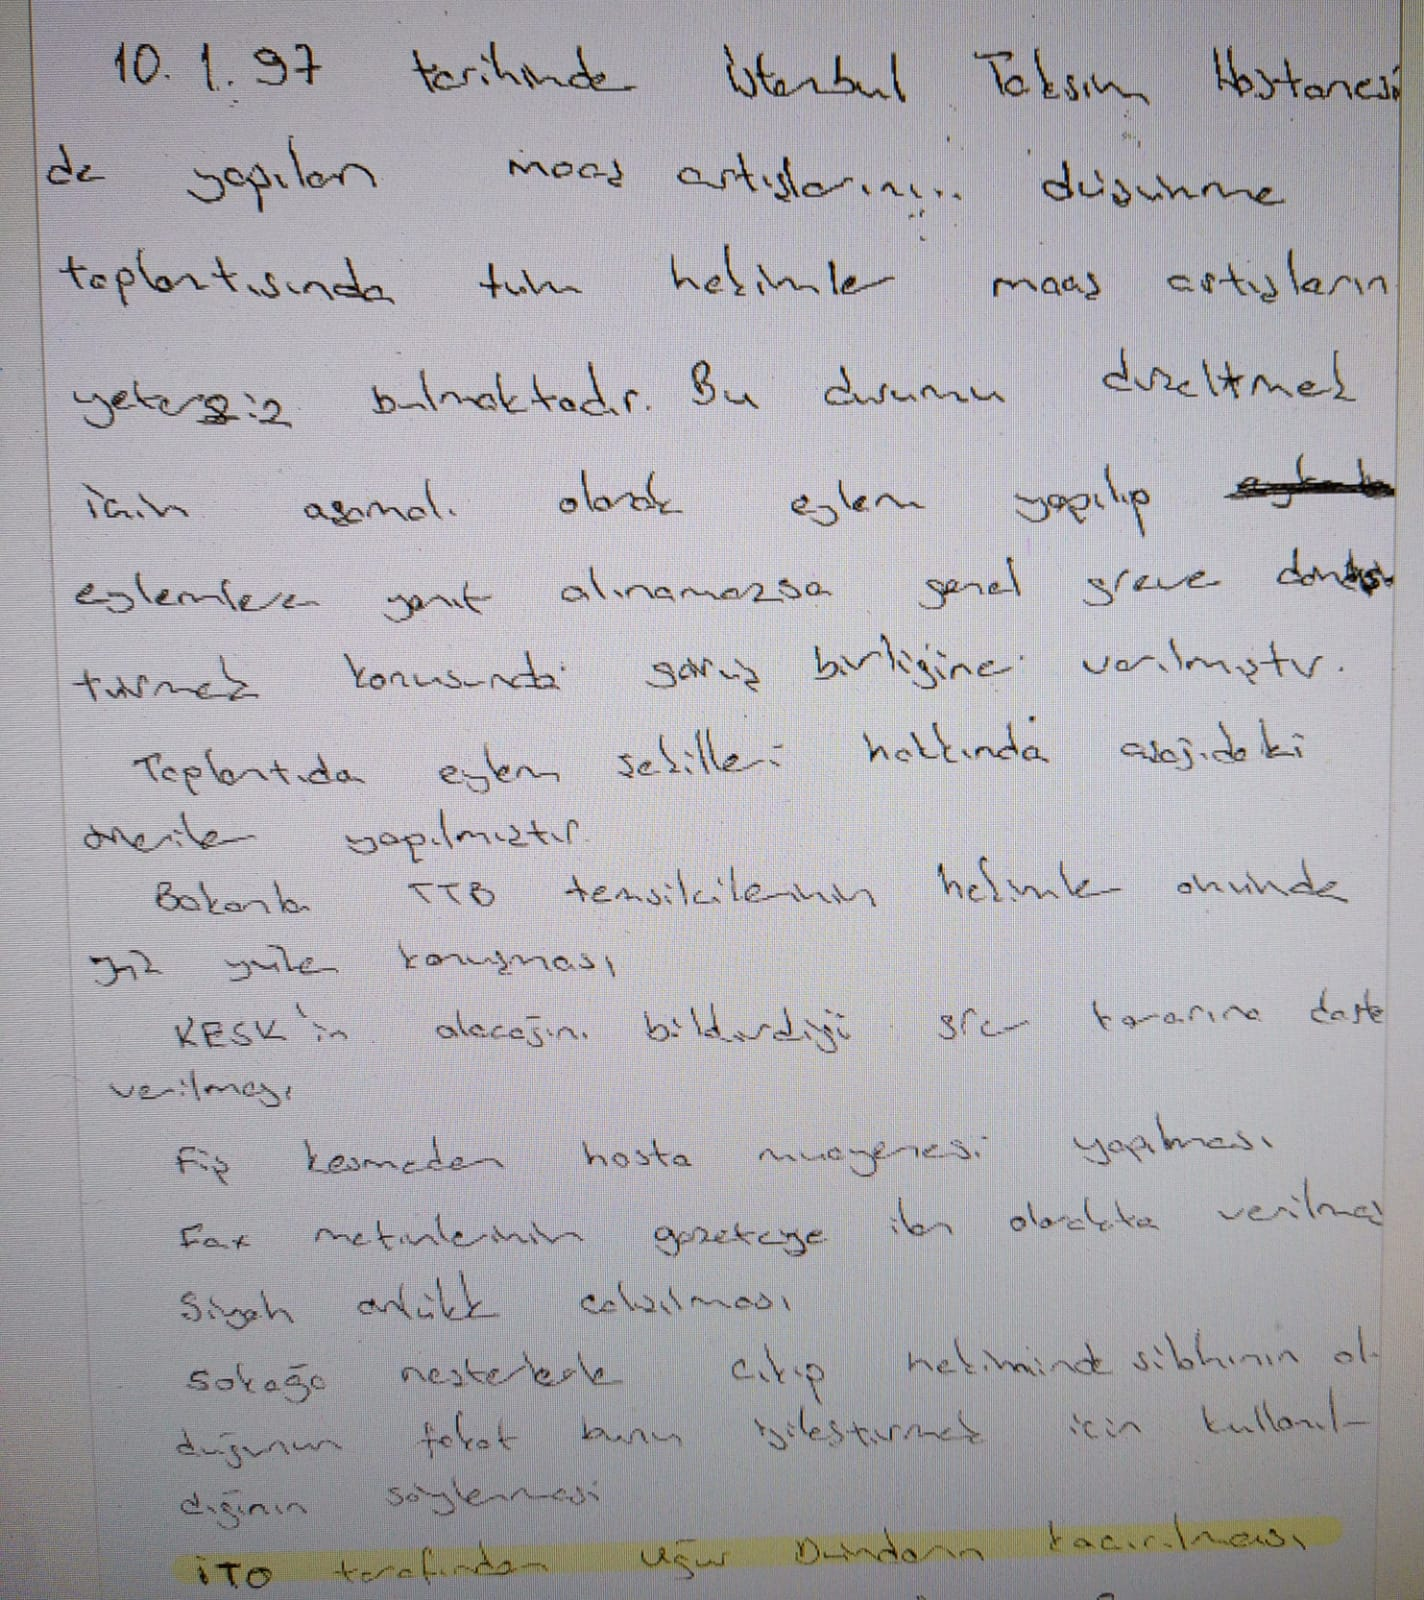 10. 1. 97 tarihinde İstanbul Taksim Hastanesi
de yapılan maaş artışlarını... düşünme
toplantısında tüm hekimler maaş artışların
yetersiz bulmaktadır. Bu durumu düzeltmek
için aşamalı olarak eylem yapılıp
eylemlere yanıt alınamazsa genel greve dönüş
türmek konusunda görüş birliğine varılmıştır.
Toplantıda eylem şekilleri hakkında aşağıdaki
öneriler yapılmıştır.
Bakanla TTB temsilcilerinin hekimler önünde
yüz yüze konuşması
KESK'in alacağını bildirdiği grev kararına deste
verilmesi
Fiş kesmeden hasta muayenesi yapılması
Fax metinlerinin gazeteye ilan olarakta verilmesi
Siyah önlükle çalışılması
Sokağa neşterlerle çıkıp hekiminde silahının ol-
duğunun fakat bunu iyileştirmek için kullanıl-
dığının söylenmesi
İTO tarafından Uğur Dündarın kaçırılması